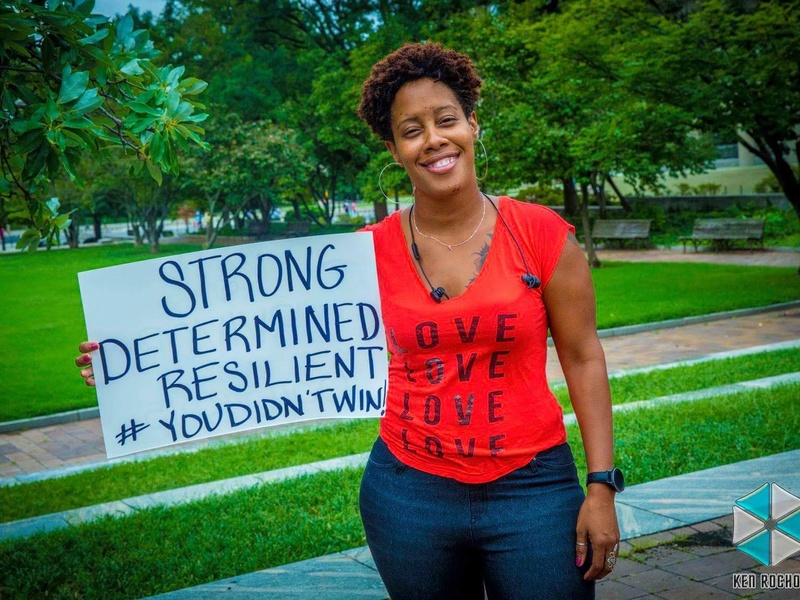 STRONG
DETERMINED
RESILIENT
#YOUDIDN'TWIN!
LOVE
LOVE
LOVE
LOVE
KEN ROCHO